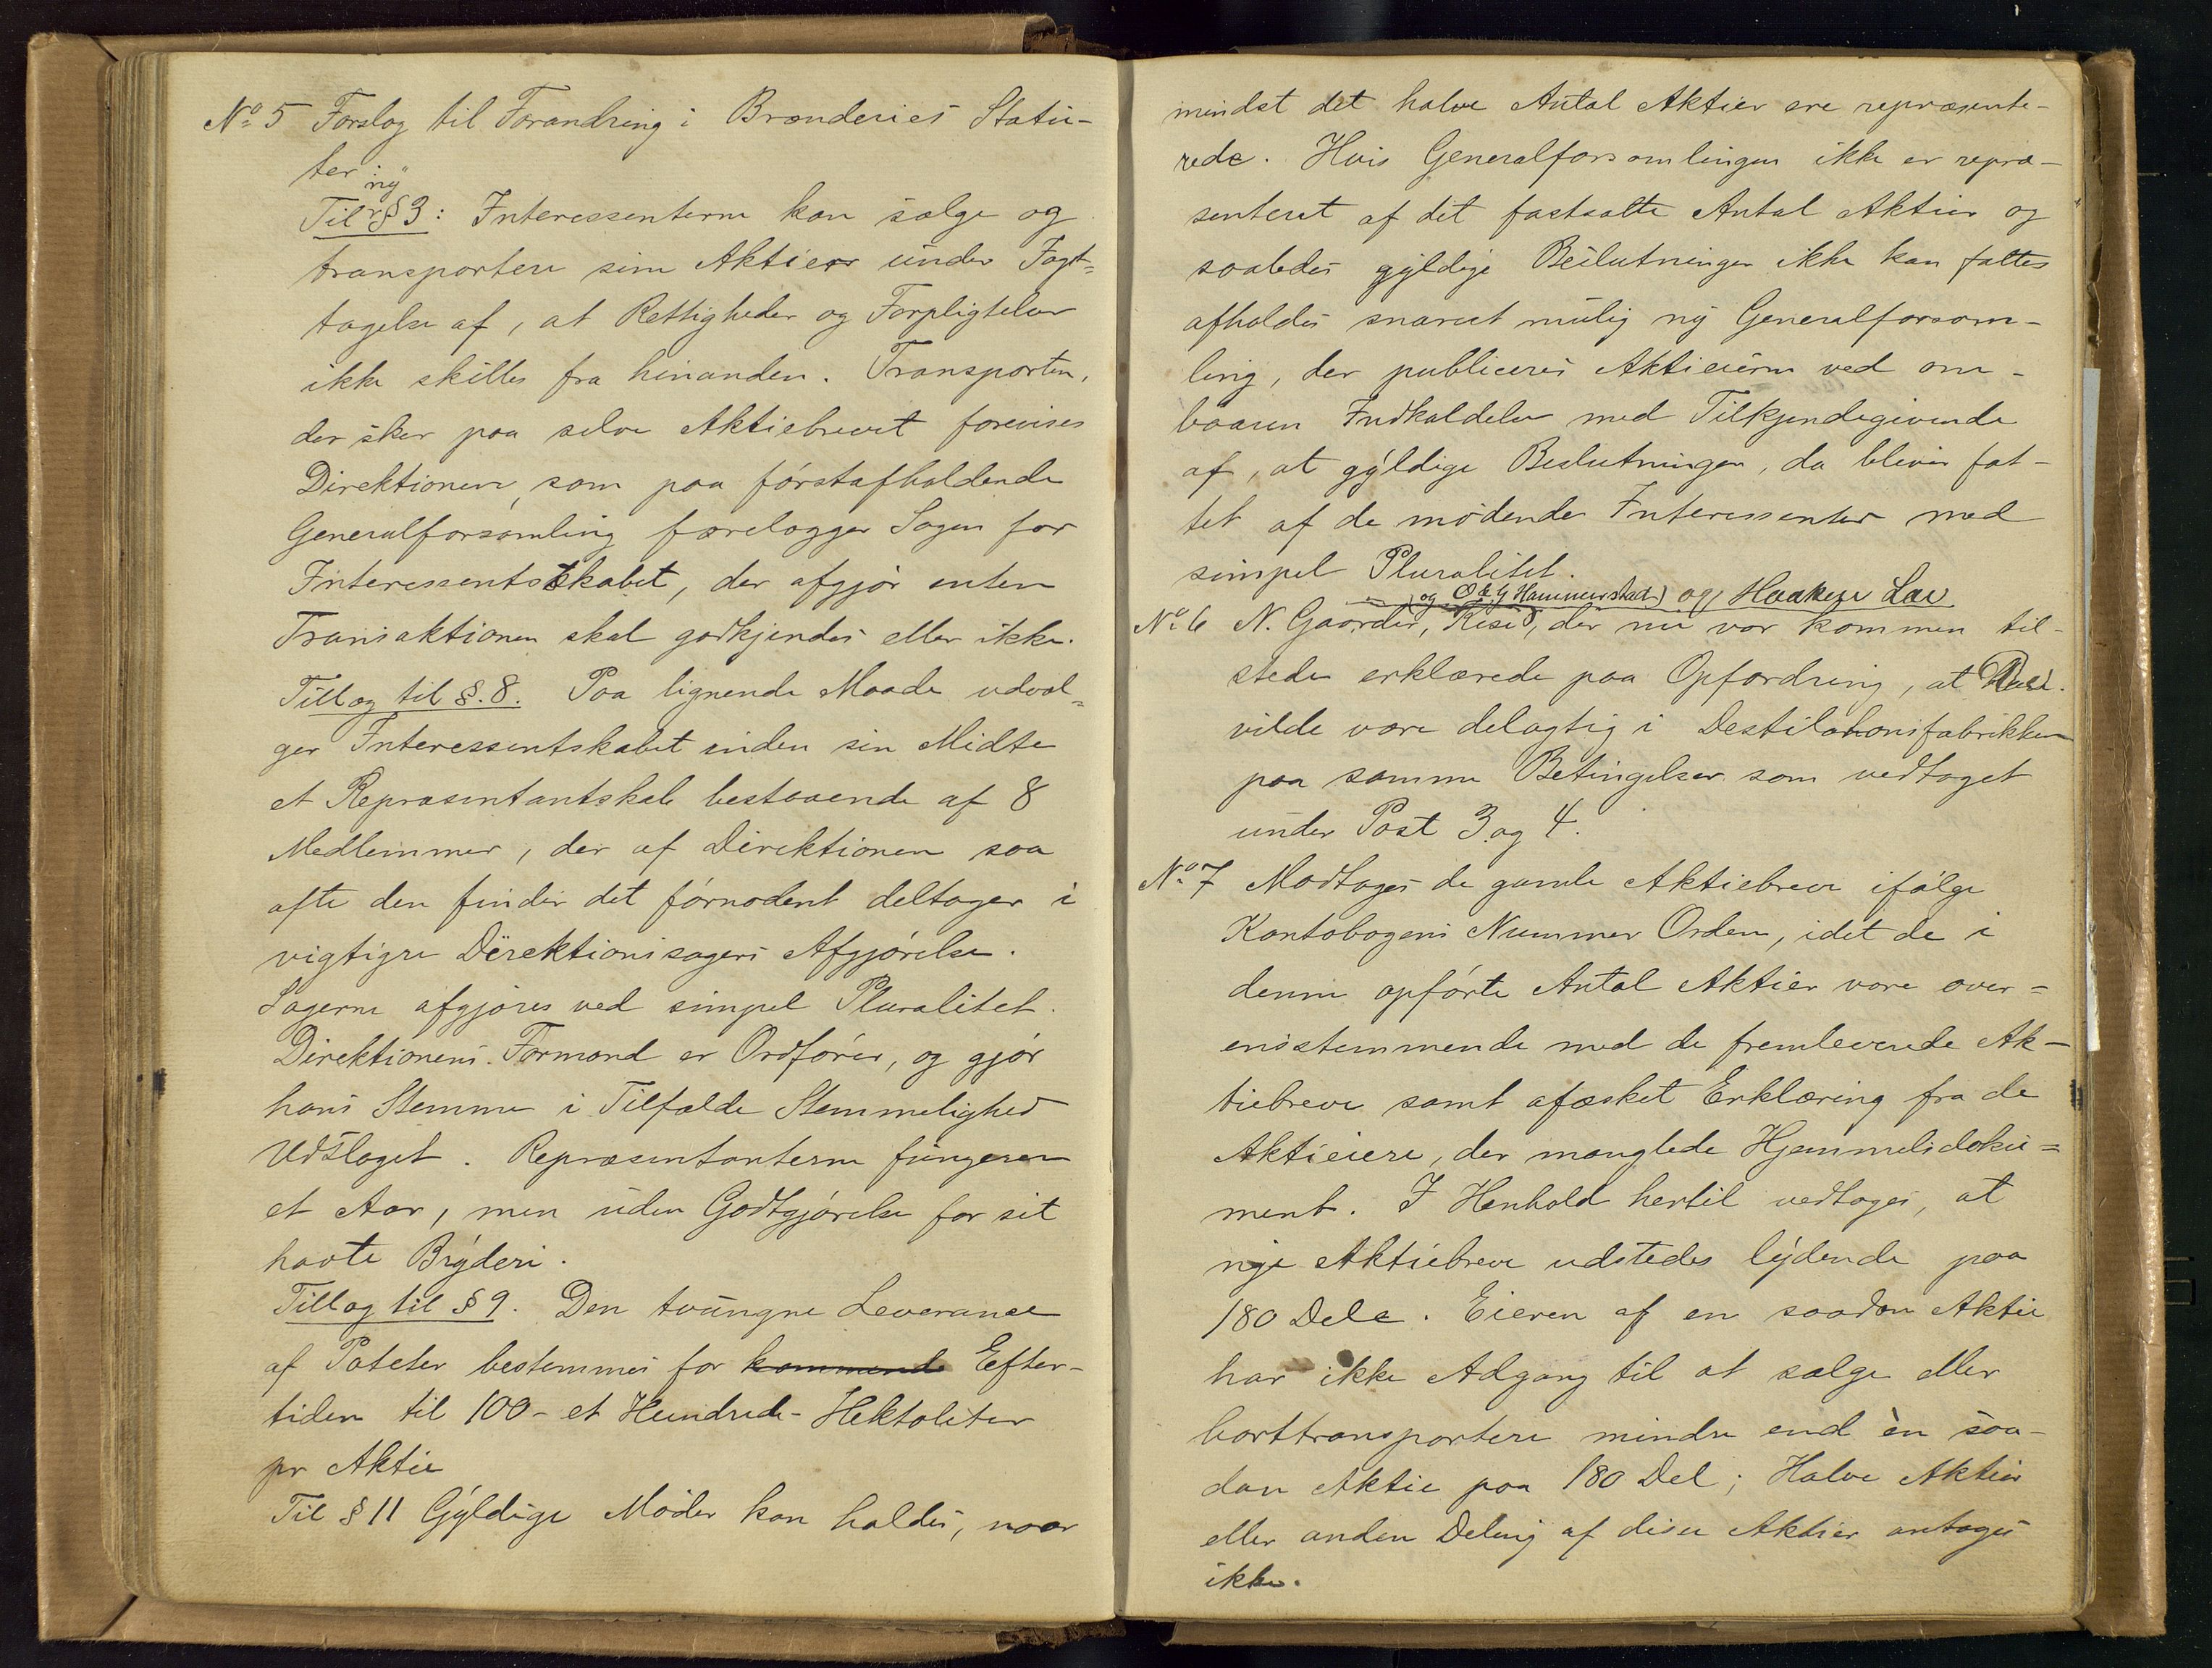 No 5 Forslag til Forandring i Brænderiets Statu-
ter
ny
Til § 3: Interessenterne kan sælge og
transportere sine Aktier under Iagt=
tagelse af, at Rettigheder og Forpligtelser
ikke skilles fra hinanden. Transporten,
der sker paa selve Aktiebrevet forevises
Direktionen, som paa førstafholdende
Generalforsamling forelægger Sagen for
Interessentskabet, der afgjør enten
Transaktionen skal godkjendes eller ikke.
Tillæg til §. 8. Paa lignende Maade udvæl=
ger Interessentskabet inden sin Midte
et Repræsentantskab bestaaende af 8
Medlemmer, der af Direktionen saa
ofte den finder det fornødent deltager i
vigtigre Direktionssagers Afgjørelse.
Sagerne afgjøres ved simpel Pluralitet.
Direktionens Formand er Ordfører, og gjør
hans Stemme i Tilfælde Stemmelighed
Udslaget. Repræsentanterne fungerer
et Aar, men uden Godtgjørelse for sit
havte Bryderi.
Tillæg til § 9. Den tvungne Leverance
af Poteter bestemmes for kommende Efter-
tiden til 100 - et Hundrede - Hektoliter
pr Aktie
Til § 11 Gyldige Møder kan holdes, naar
mindst det halve Antal Aktier ere repræsente-
rede. Hvis Generalforsamlingen ikke er repræ-
senteret af det fastsatte Antal Aktier og
saaledes gyldige Beslutninger ikke kan fattes
afholdes snarest mulig ny Generalforsam-
ling, der publiceres Aktieeierne ved om-
baaren Indkaldelse med Tilkjendegivende
af, at gyldige Beslutninger, da bliver fat-
tet af de mødende Interessenter med
simpel Pluralitet.
og O & G Hammerstad) og Haaken Lae
No 6 N. Gaarder, Riise, der nu var kommen til-
stede erklærede paa Opfordring, at
vilde være delagtig i Destilationsfabrikken
paa samme Betingelser som vedtaget
under Post 3 og 4.
No 7 Modtages de gamle Aktiebreve ifølge
Kontobogens Nummer Orden, idet de i
denne opførte Antal Aktier vare over=
ensstemmende med de fremleverede Ak-
tiebreve samt afæsket Erklæring fra de
Aktieeiere, der manglede Hjemmelsdoku=
ment. I Henhold hertil vedtoges, at
nye Aktiebreve udstedes lydende paa
180 Dele. Eieren af en saadan Aktie
har ikke Adgang til at sælge eller
borttransportere mindre end èn saa-
dan Aktie paa 180 Del; Halve Aktier
eller anden Deling af disse Aktier antages
ikke.